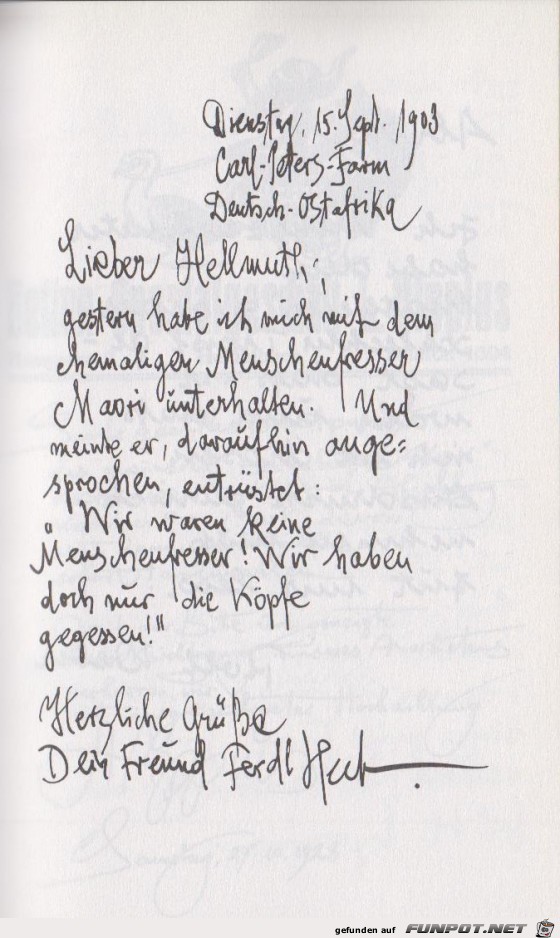 Dienstag, 15. Sept. 1903
Carl-Peters-Farm
Deutsch-Ostafrika
Lieber Hellmuth,
gestern habe ich mich mit dem
ehemaligen Menschenfresser
Maori unterhalten. Und
meinte er, daraufhin ange=
sprochen, entrüstet:
„Wir waren keine
Menschenfresser! Wir haben
doch nur die Köpfe
gegessen!"
Herzliche Grüße
Dein Freund Ferdl Heck
gefunden auf FUNPOT.NET